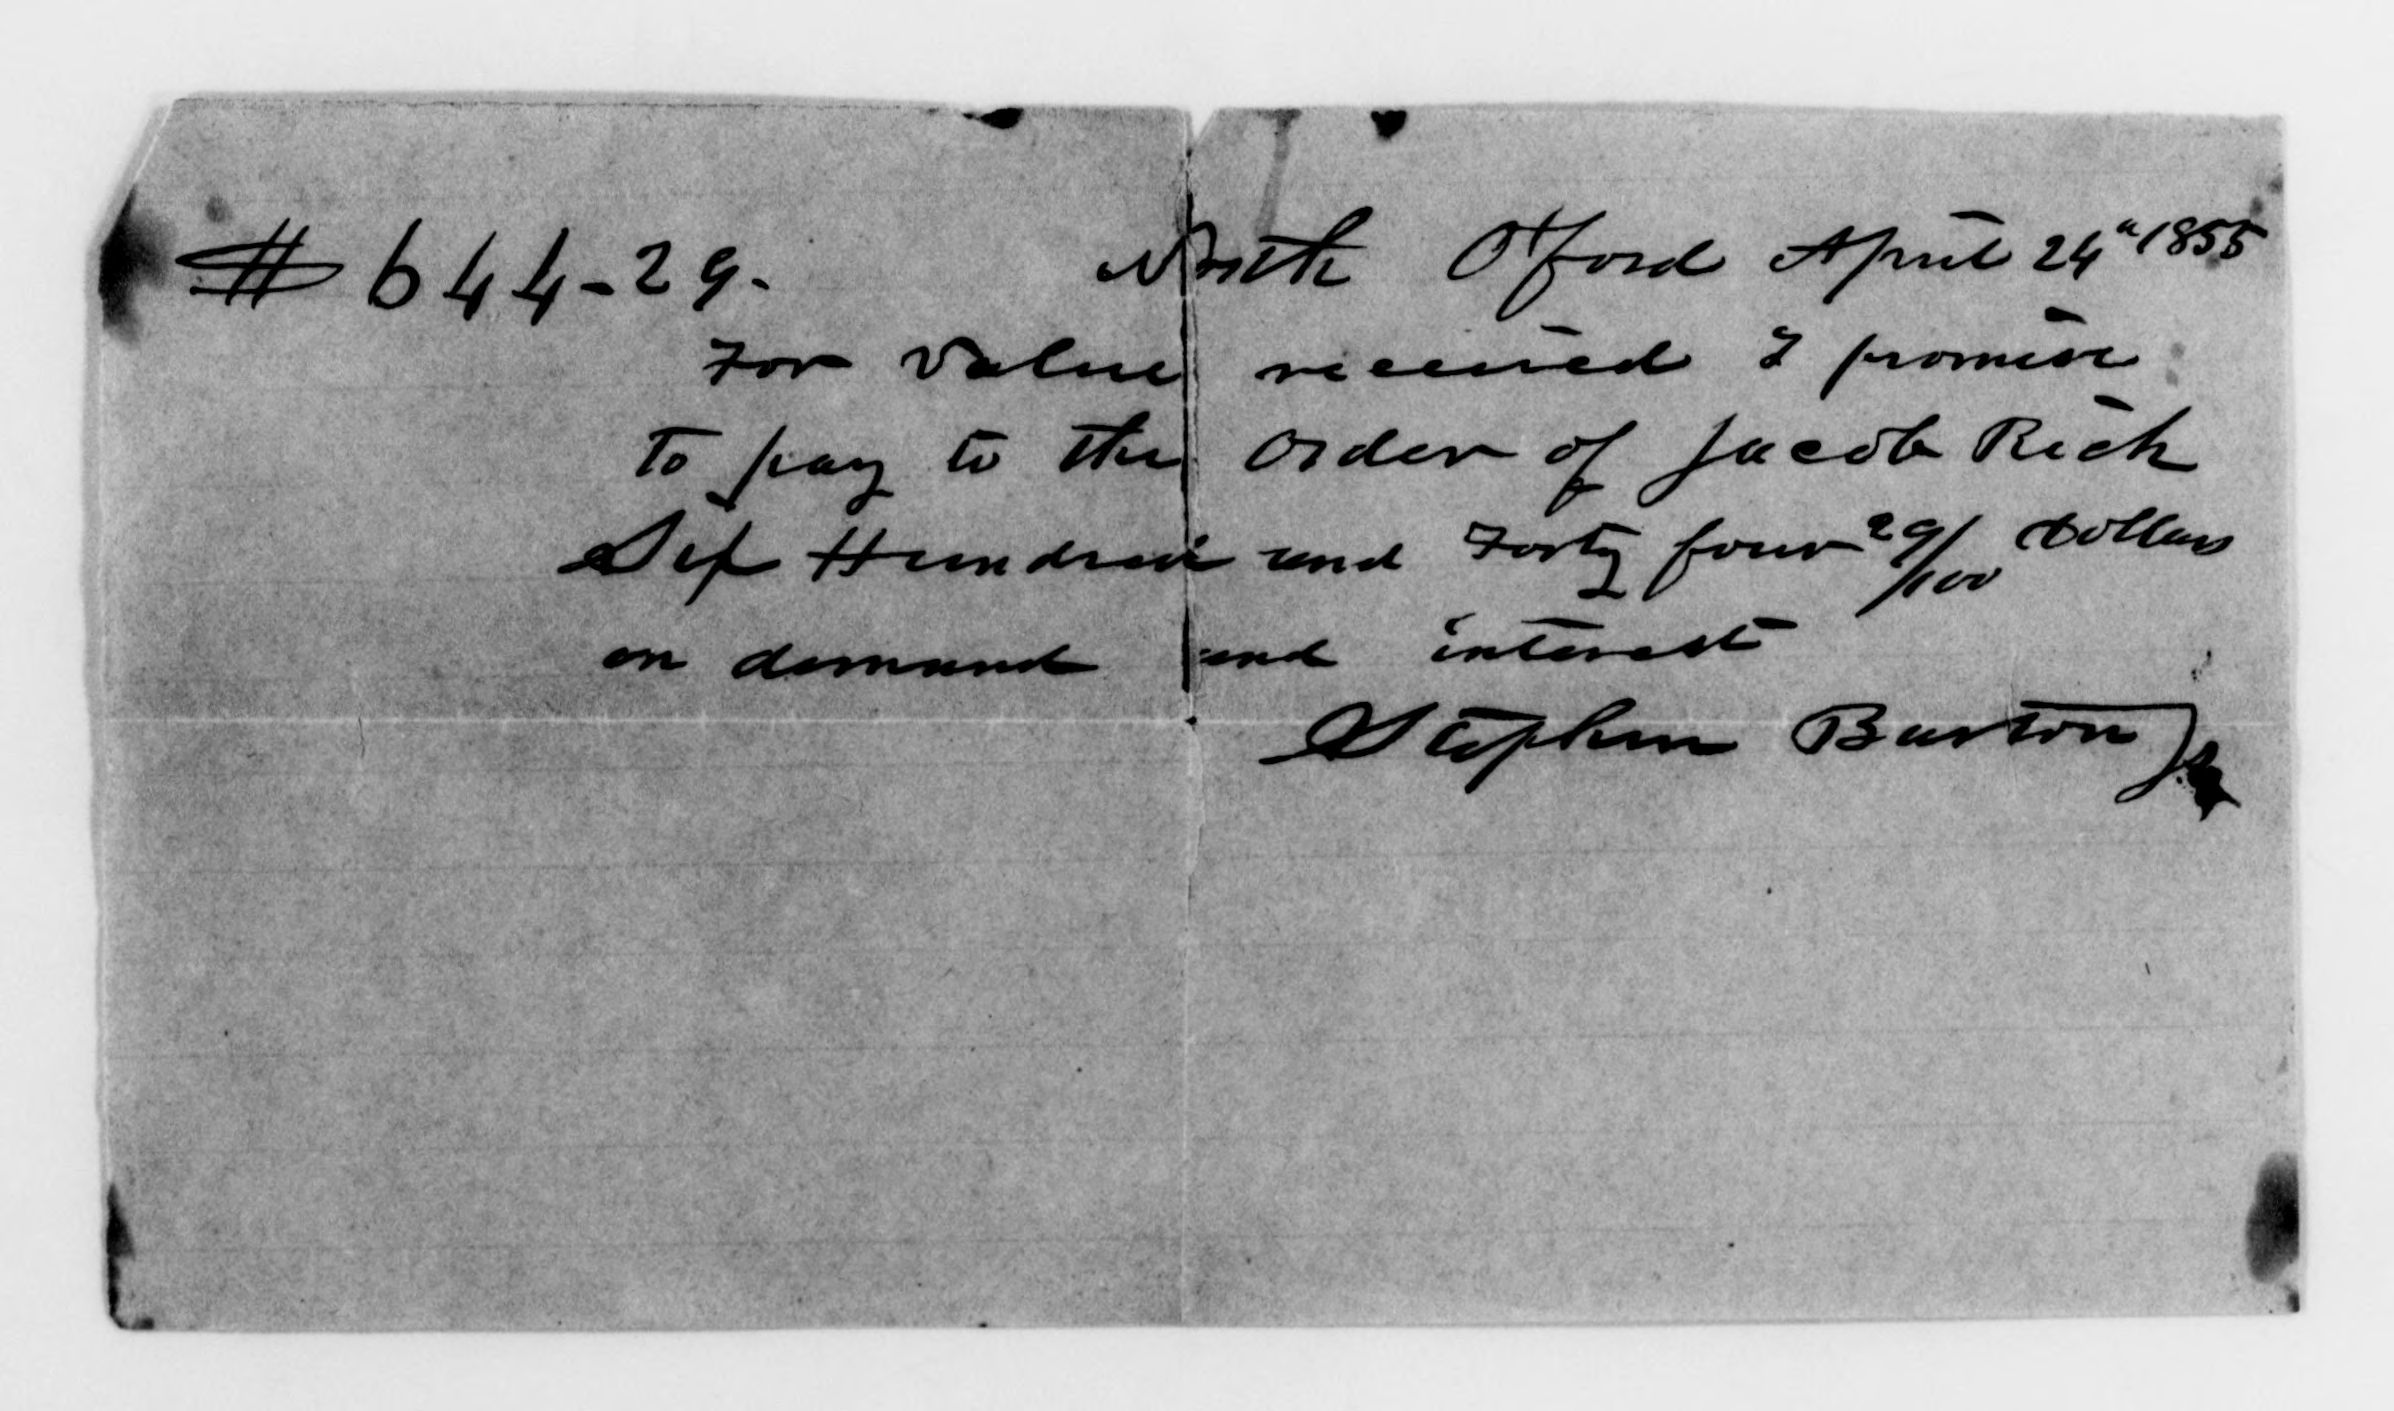 $644-29. North Oxford April 24" 1855
For value received I promise
to pay to the order of Jacob Rich
Six Hundred and Forty four 29/100 Dollars
on demand and interest
Stephen Barton Jr